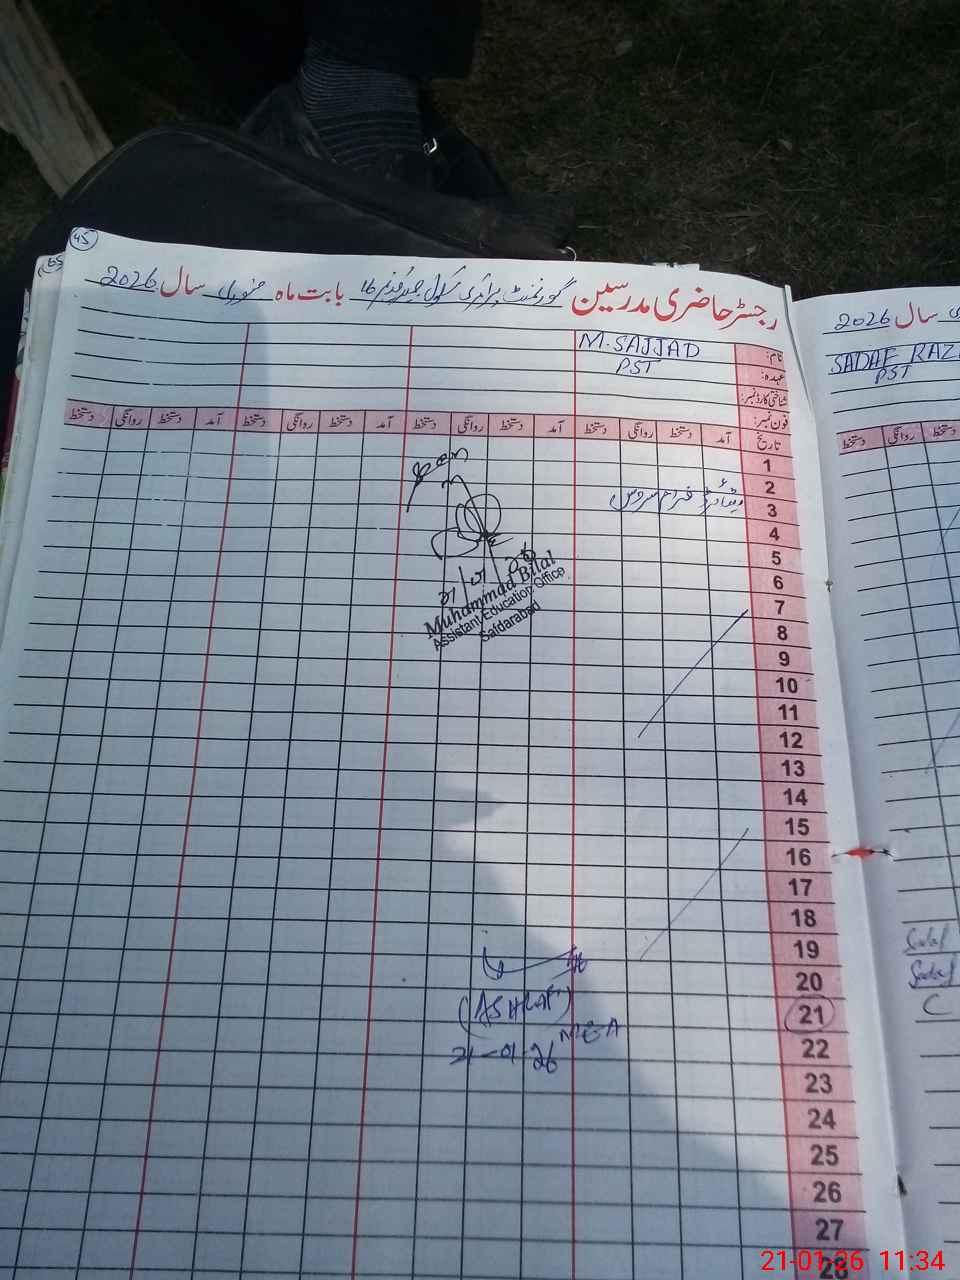 45
رجسٹر حاضری مدرسین گورنمنٹ پرائمری سکول بابت ماہ جنوری سال 2026
نام: M. SAJJAD
عہدہ: PST
شناختی کارڈ نمبر:
فون نمبر:
تاریخ آمد دستخط روانگی دستخط آمد دستخط روانگی دستخط آمد دستخط روانگی دستخط آمد دستخط روانگی دستخط
1
2
3
4
5
6
7
8
9
10
11
12
13
14
15
16
17
18
19
20
21
22
23
24
25
26
27
28
Seen
21/01/26
Muhammad Bilal
Assistant Education Office
Safdarabad
(ASHRAF)
MEA
21-01-26
سال 2026
SADAF RAZ
PST
دستخط روانگی دستخط
Sadaf
Sadaf
C
21-01-26 11:34